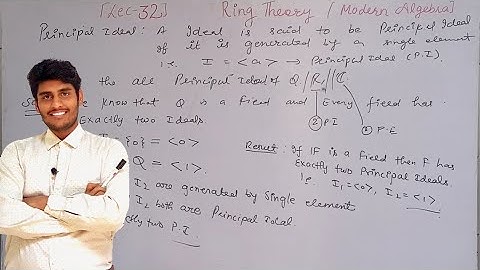 [Lec-32] Ring Theory / Modern Algebra]
Principal Ideal: A Ideal is said to be Principal Ideal
if it is generated by a single element
i.e. I = <a> → Principal Ideal (P.I).
the all Principal Ideal of Q // R // C
know that Q is a field and Every field has
Exactly two Ideals.
② P.I
{0} = <0>
Q = <1>.
Result: If IF is a field then F has
exactly two Principal Ideals.
i.e. I₁ = <0>, I₂ = <1>.
I₂ are generated by Single element
I₂ both are Principal Ideal.
two P.I.